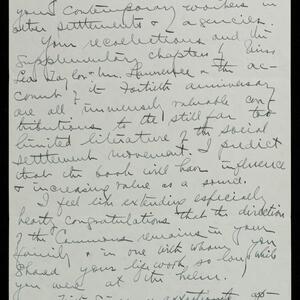 your contemporary workers in
other settlements & agencies.
Your recollections and the
supplementary chapters of Miss
Lea Taylor & Mr. & the ac-
count of its Fortieth anniversary
are all immensely valuable con-
tributions to the still far too
limited literature of the social
settlement movement. I predict
that the book will have influence
& increasing value as a source.
I feel like extending especially
hearty congratulations that the direction
of the Commons remains in your
family & in one with whom you
shared your lifework so long while
you were at the helm.